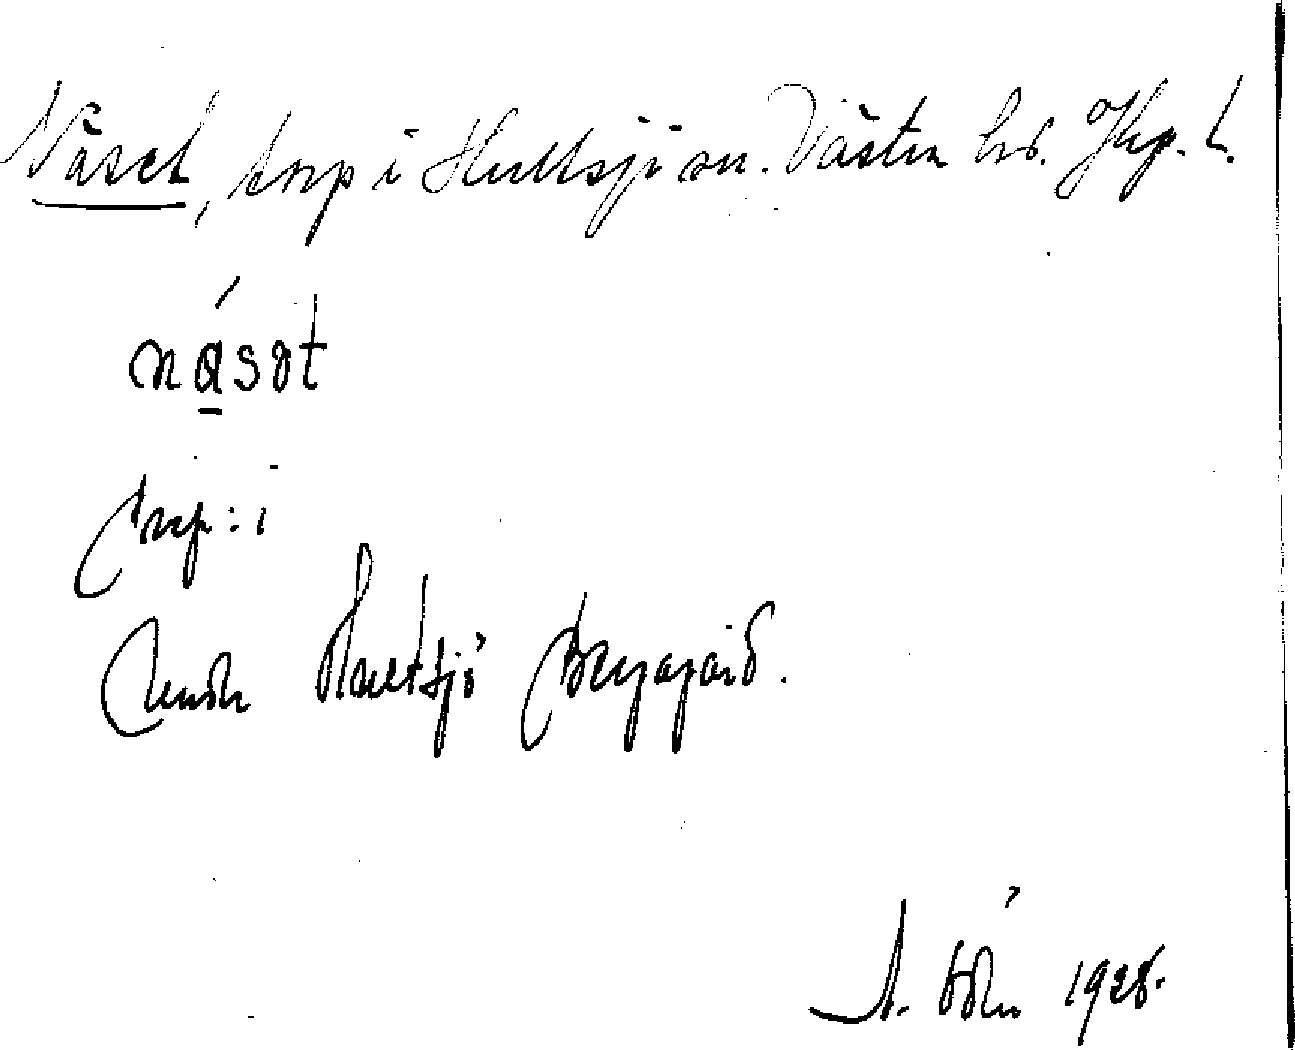 Näset, torp i Hultsjö sn. Västra hd. Jkp. l.
násət
torp: i
under Hultsjö Berggård.
1928.